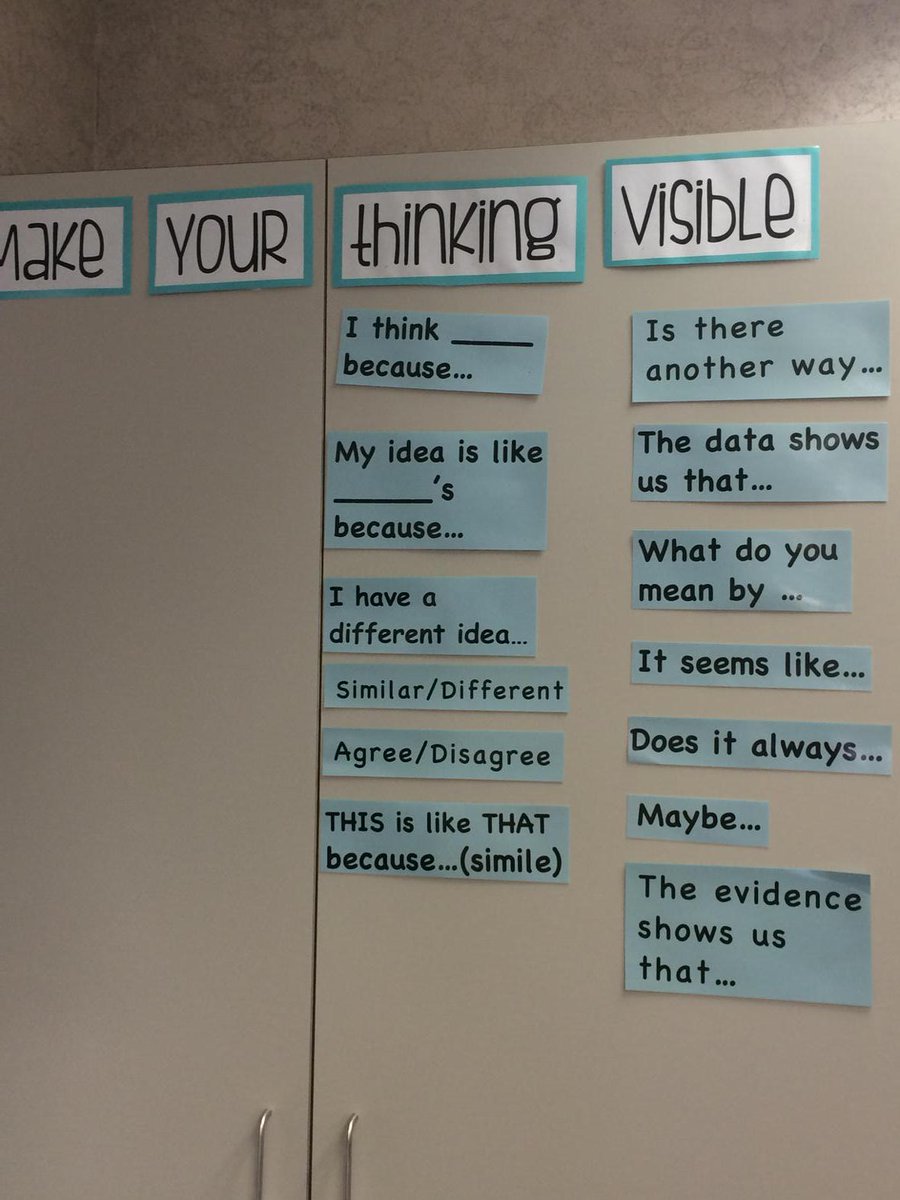 Make YOUR thinking VISIBLE
I think _____
because...
My idea is like
______'s
because...
I have a
different idea...
Similar/Different
Agree/Disagree
THIS is like THAT
because...(simile)
Is there
another way...
The data shows
us that...
What do you
mean by ...
It seems like...
Does it always...
Maybe...
The evidence
shows us
that...